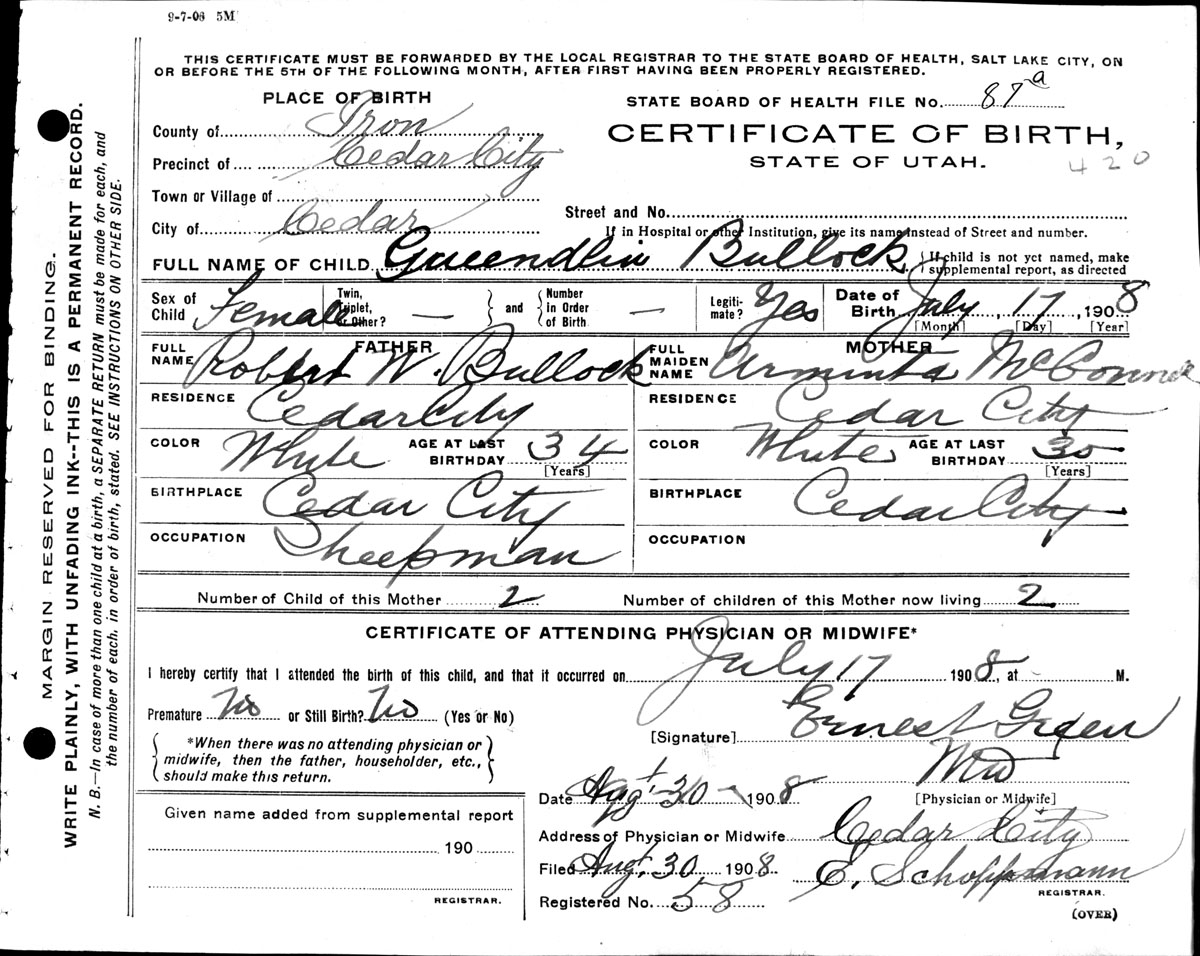 9-7-08 5M
THIS CERTIFICATE MUST BE FORWARDED BY THE LOCAL REGISTRAR TO THE STATE BOARD OF HEALTH, SALT LAKE CITY, ON
OR BEFORE THE 5TH OF THE FOLLOWING MONTH, AFTER FIRST HAVING BEEN PROPERLY REGISTERED.
PLACE OF BIRTH
STATE BOARD OF HEALTH FILE No. 87a
County of Iron
CERTIFICATE OF BIRTH,
STATE OF UTAH.
420
Precinct of Cedar City
Town or Village of
City of Cedar
Street and No.
If in Hospital or other Institution, give its name instead of Street and number.
FULL NAME OF CHILD Gueendlin Bullock { If child is not yet named, make
supplemental report, as directed
Sex of Child Female Twin, Triplet, or Other? — } and { Number in Order of Birth — Legitimate? Yes Date of Birth July, 17, 1908
[Month] [Day] [Year]
FATHER
FULL NAME Robert W. Bullock
MOTHER
FULL MAIDEN NAME Arminta McConnel
RESIDENCE Cedar City
RESIDENCE Cedar City
COLOR White AGE AT LAST BIRTHDAY 34 [Years]
COLOR White AGE AT LAST BIRTHDAY 30 [Years]
BIRTHPLACE Cedar City
BIRTHPLACE Cedar City
OCCUPATION Sheepman
OCCUPATION
Number of Child of this Mother 2 Number of children of this Mother now living 2
CERTIFICATE OF ATTENDING PHYSICIAN OR MIDWIFE*
I hereby certify that I attended the birth of this child, and that it occurred on July 17 1908, at M.
Premature No or Still Birth? No (Yes or No)
[Signature] Ernest Green
MD
[Physician or Midwife]
{ *When there was no attending physician or
midwife, then the father, householder, etc.,
should make this return. }
Date Augt 30 1908
Given name added from supplemental report
190
REGISTRAR.
Address of Physician or Midwife Cedar City
Filed Augt. 30 1908. E. Schoppmann
REGISTRAR.
Registered No. 58
(OVER)
MARGIN RESERVED FOR BINDING.
WRITE PLAINLY, WITH UNFADING INK--THIS IS A PERMANENT RECORD.
N. B.—In case of more than one child at a birth, a SEPARATE RETURN must be made for each, and
the number of each, in order of birth, stated. SEE INSTRUCTIONS ON OTHER SIDE.